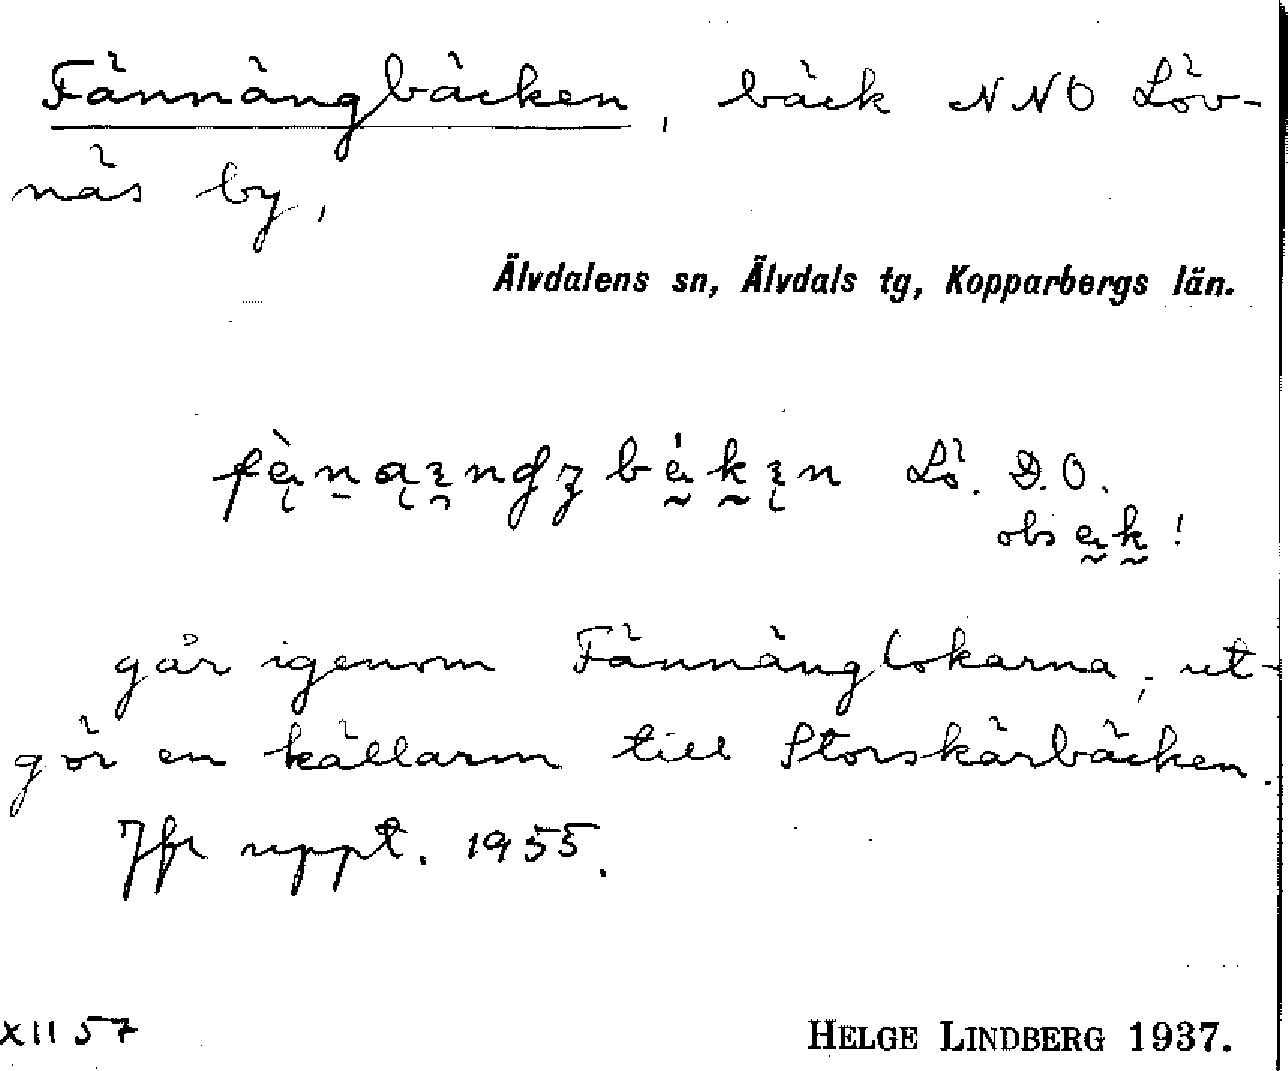 Fännängbäcken, bäck NNO Löv-
näs by,
Älvdalens sn, Älvdals tg, Kopparbergs län.
Lö. D.O.
obs !
går igenom Fännänglokarna, ut-
gör en källarm till Storskärbäcken.
Jfr uppt. 1955.
XII 57
HELGE LINDBERG 1937.